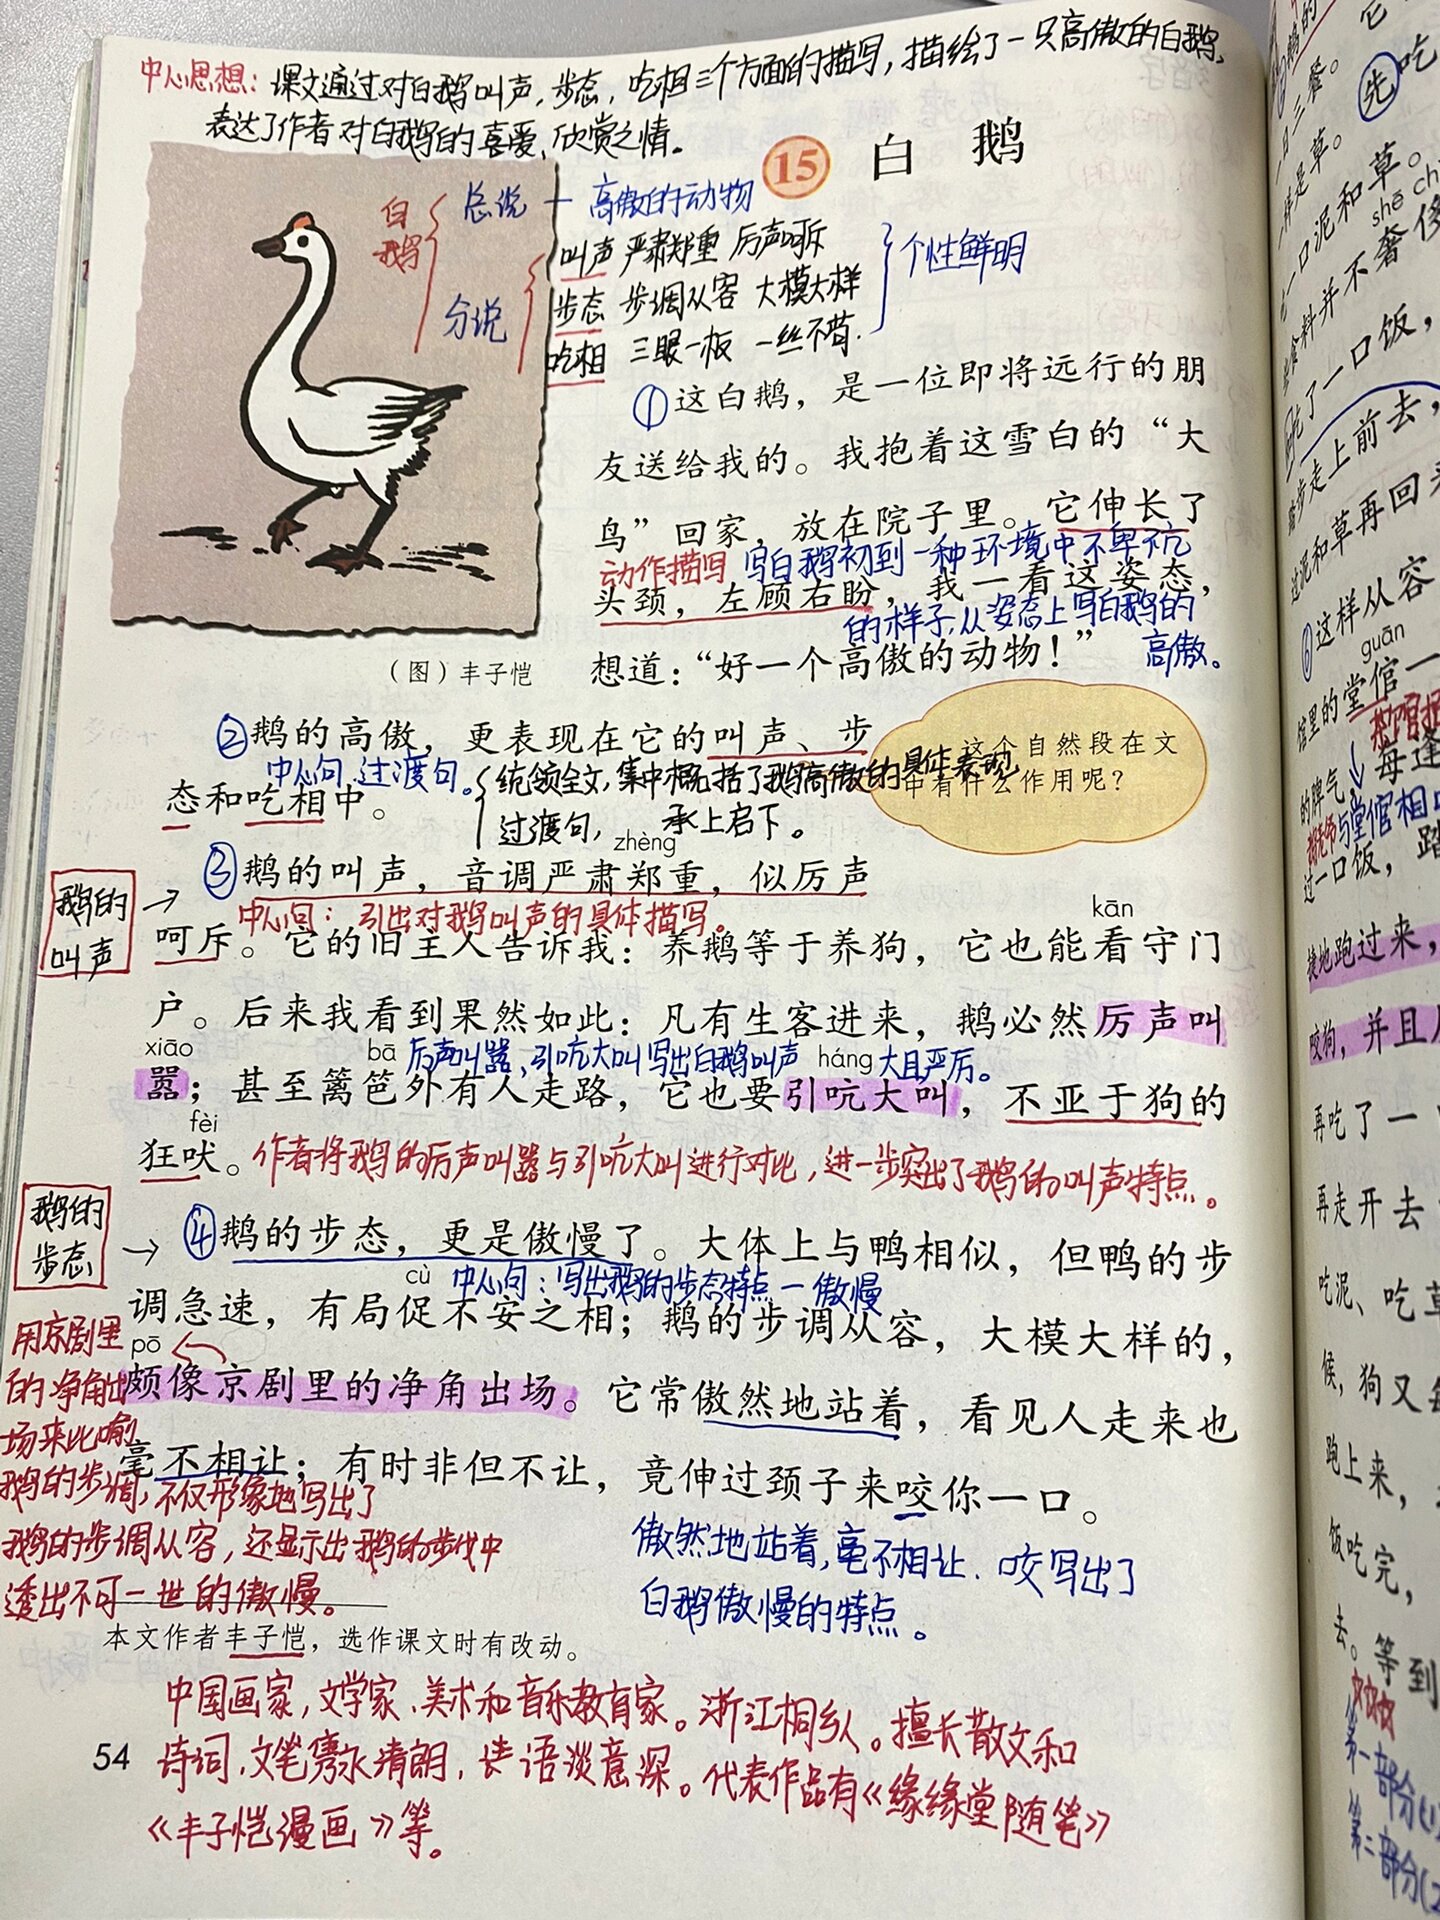 中心思想：课文通过对白鹅叫声、步态、吃相三个方面的描写，描绘了一只高傲的白鹅，
表达了作者对白鹅的喜爱、欣赏之情。
15 白鹅
白鹅
总说 — 高傲的动物
分说
叫声 严肃郑重 厉声呵斥
步态 步调从容 大模大样
吃相 三眼一板 一丝不苟.
个性鲜明
①这白鹅，是一位即将远行的朋
友送给我的。我抱着这雪白的“大
鸟”回家，放在院子里。它伸长了
动作描写 写白鹅初到一种环境中不卑不亢
头颈，左顾右盼，我一看这姿态，
的样子，从姿态上写白鹅的
高傲。
想道：“好一个高傲的动物！”
（图）丰子恺
②鹅的高傲，更表现在它的叫声、步
中心句 过渡句。
统领全文，集中概括了鹅高傲的具体表现
过渡句， 承上启下。
态和吃相中。
这个自然段在文
中有什么作用呢？
zhèng
③鹅的叫声，音调严肃郑重，似厉声
鹅的
叫声
中心句：引出对鹅叫声的具体描写。
kān
呵斥。它的旧主人告诉我：养鹅等于养狗，它也能看守门
户。后来我看到果然如此：凡有生客进来，鹅必然厉声叫
xiāo bā háng
厉声叫嚣、引吭大叫写出白鹅叫声大且严厉。
嚣；甚至篱笆外有人走路，它也要引吭大叫，不亚于狗的
fèi
狂吠。
作者将鹅的厉声叫嚣与引吭大叫进行对比，进一步突出了鹅的叫声特点。
鹅的
步态
④鹅的步态，更是傲慢了。大体上与鸭相似，但鸭的步
cù
中心句：写出鹅的步态特点—傲慢
调急速，有局促不安之相；鹅的步调从容，大模大样的，
pō
颇像京剧里的净角出场。它常傲然地站着，看见人走来也
毫不相让；有时非但不让，竟伸过颈子来咬你一口。
用京剧里
的净角出
场来比喻
鹅的步调，不仅形象地写出了
鹅的步调从容，还显示出鹅的步伐中
透出不可一世的傲慢。
傲然地站着，毫不相让、咬写出了
白鹅傲慢的特点。
本文作者丰子恺，选作课文时有改动。
中国画家，文学家、美术和音乐教育家。浙江桐乡人。擅长散文和
诗词，文笔隽永清朗，语淡意深。代表作品有《缘缘堂随笔》
《丰子恺漫画》等。
54
先吃
日三餐。
样是草。
一口泥和草。
shē
食料并不奢侈
吃了一口饭，
踏步走上前去，
过泥和草再回
⑥这样从容
guān
馆里的堂倌一
的脾气，每逢
与堂倌相
过一口饭，踏
捷地跑过来，
咬狗，并且
再吃了一
再走开去
吃泥、吃草
候，狗又
跑上来，
饭吃完，
去。等到
第一部分
第二部分